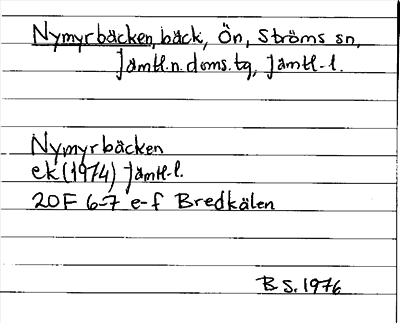 Nymyrbäcken, bäck, Ön, Ströms sn,
Jämtl.n.doms.tg, Jämtl-l.
Nymyrbäcken
ek (1974) Jämtl-l.
20F 6-7 e-f Bredkälen
B S. 1976